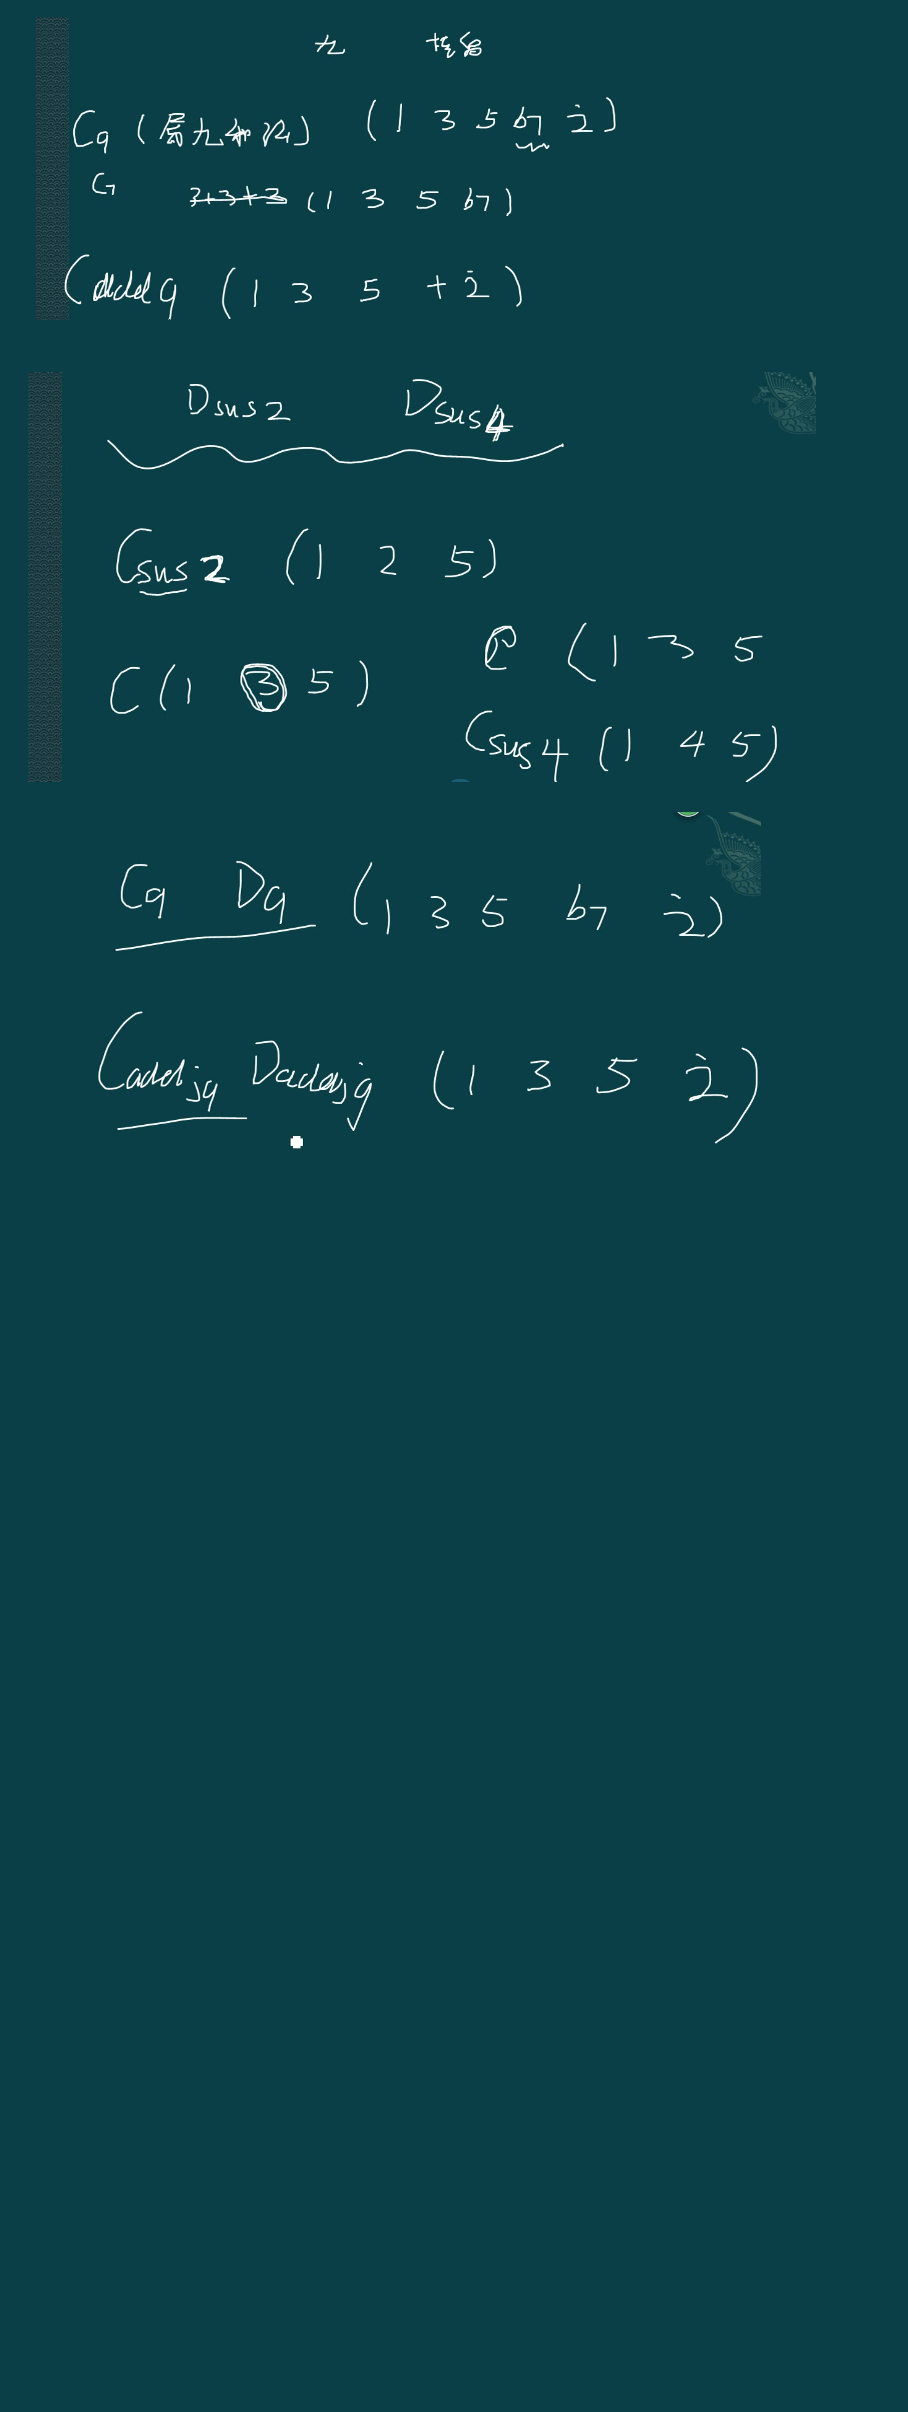 九 挂留
C9 (属九和弦) (1 3 5 b7 2̇)
C7 3+3+3 (1 3 5 b7)
Cadd9 (1 3 5 + 2̇)
Dsus2 Dsus4
Csus2 (1 2 5)
C (1 3 5
C (1 3 5)
Csus4 (1 4 5)
C9 D9 (1 3 5 b7 2̇)
(1 3 5 2̇)